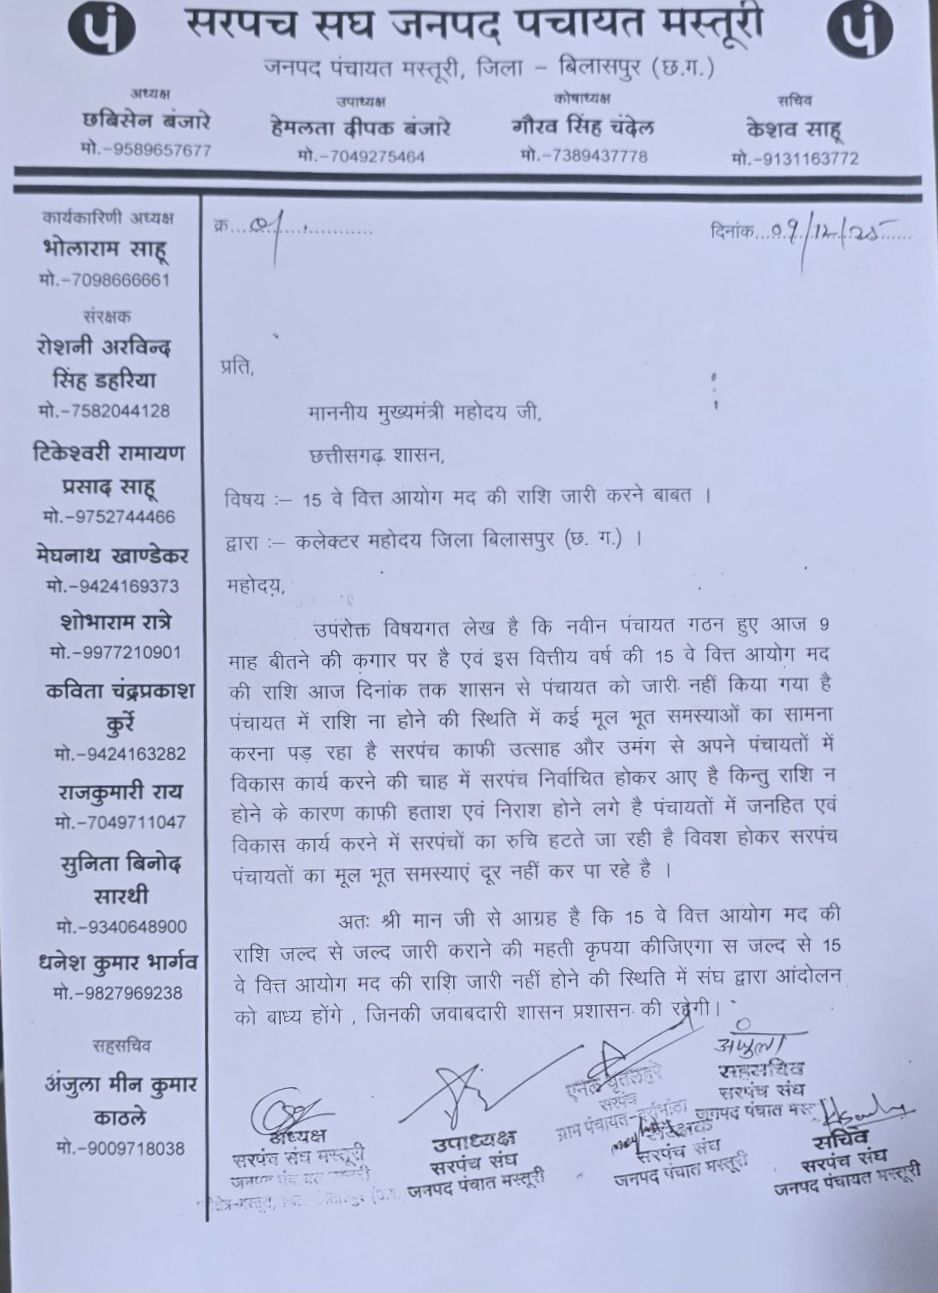 पं
सरपच सघ जनपद पचायत मस्तूरी
पं
जनपद पंचायत मस्तूरी, जिला – बिलासपुर (छ.ग.)
अध्यक्ष
छबिसेन बंजारे
मो.-9589657677
उपाध्यक्ष
हेमलता दीपक बंजारे
मो.-7049275464
कोषाध्यक्ष
गौरव सिंह चंदेल
मो.-7389437778
सचिव
केशव साहू
मो.-9131163772
कार्यकारिणी अध्यक्ष
भोलाराम साहू
मो.-7098666661
संरक्षक
रोशनी अरविन्द
सिंह डहरिया
मो.-7582044128
टिकेश्वरी रामायण
प्रसाद साहू
मो.-9752744466
मेघनाथ खाण्डेकर
मो.-9424169373
शोभाराम रात्रे
मो.-9977210901
कविता चंद्रप्रकाश
कुर्रे
मो.-9424163282
राजकुमारी राय
मो.-7049711047
सुनिता बिनोद
सारथी
मो.-9340648900
धनेश कुमार भार्गव
मो.-9827969238
सहसचिव
अंजुला मीन कुमार
काठले
मो.-9009718038
क्र...01...............
दिनांक...09/12/25......
प्रति,
माननीय मुख्यमंत्री महोदय जी,
छत्तीसगढ़ शासन,
विषय :– 15 वे वित्त आयोग मद की राशि जारी करने बाबत ।
द्वारा :– कलेक्टर महोदय जिला बिलासपुर (छ. ग.) ।
महोदय,
उपरोक्त विषयगत लेख है कि नवीन पंचायत गठन हुए आज 9
माह बीतने की कगार पर है एवं इस वित्तीय वर्ष की 15 वे वित्त आयोग मद
की राशि आज दिनांक तक शासन से पंचायत को जारी नहीं किया गया है
पंचायत में राशि ना होने की स्थिति में कई मूल भूत समस्याओं का सामना
करना पड़ रहा है सरपंच काफी उत्साह और उमंग से अपने पंचायतों में
विकास कार्य करने की चाह में सरपंच निर्वाचित होकर आए है किन्तु राशि न
होने के कारण काफी हताश एवं निराश होने लगे है पंचायतों में जनहित एवं
विकास कार्य करने में सरपंचों का रुचि हटते जा रही है विवश होकर सरपंच
पंचायतों का मूल भूत समस्याएं दूर नहीं कर पा रहे है ।
अतः श्री मान जी से आग्रह है कि 15 वे वित्त आयोग मद की
राशि जल्द से जल्द जारी कराने की महती कृपया कीजिएगा स जल्द से 15
वे वित्त आयोग मद की राशि जारी नहीं होने की स्थिति में संघ द्वारा आंदोलन
को बाध्य होंगे , जिनकी जवाबदारी शासन प्रशासन की रहेगी।
अध्यक्ष
सरपंच संघ मस्तूरी
उपाध्यक्ष
सरपंच संघ
जनपद पंचात मस्तूरी
सरपंच
ग्राम पंचायत
सरपंच संघ
जनपद पंचात मस्तूरी
अंजुला
सहसचिव
सरपंच संघ
जनपद पंचात मस्तू
सचिव
सरपंच संघ
जनपद पंचायत मस्तूरी